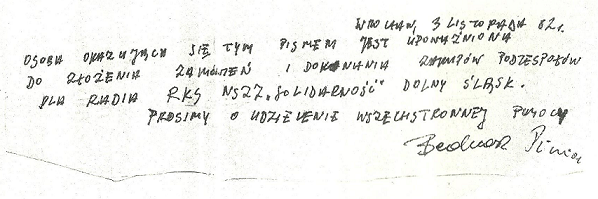 WROCŁAW, 3 LISTOPADA 82r.
OSOBA OKAZUJĄCA SIĘ TYM PISMEM JEST UPOWAŻNIONA
DO ZŁOŻENIA ZAMÓWIEŃ I DOKONANIA ZAKUPÓW PODZESPOŁÓW
DLA RADIA RKS NSZZ „SOLIDARNOŚĆ" DOLNY ŚLĄSK.
PROSIMY O UDZIELENIE WSZECHSTRONNEJ POMOCY
Bednarz Pinior